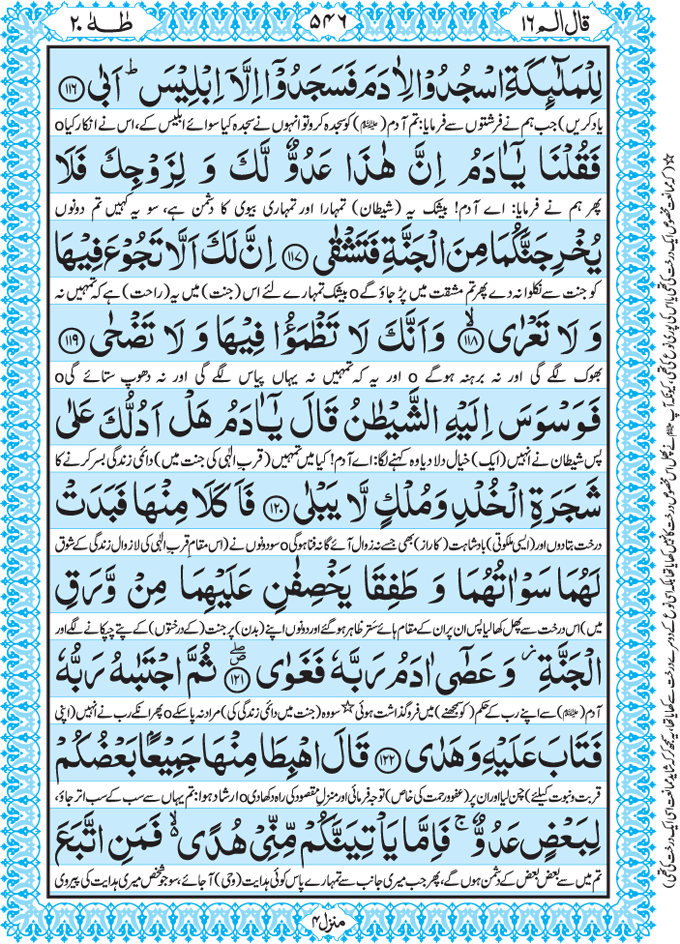 قال الم ١٦
٥٤٦
طٰهٰ ٢٠
لِلْمَلٰٓئِكَةِ اسْجُدُوْا لِاٰدَمَ فَسَجَدُوْۤا اِلَّاۤ اِبْلِیْسَ ؕ اَبٰی ﴿۱۱۶﴾
یاد کریں) جب ہم نے فرشتوں سے فرمایا: تم آدم (علیہ السلام) کو سجدہ کرو تو انہوں نے سجدہ کیا سوائے ابلیس کے، اس نے انکار کیا o
فَقُلْنَا یٰۤاٰدَمُ اِنَّ هٰذَا عَدُوٌّ لَّكَ وَ لِزَوْجِكَ فَلَا
پھر ہم نے فرمایا: اے آدم! بیشک یہ (شیطان) تمہارا اور تمہاری بیوی کا دشمن ہے، سو یہ کہیں تم دونوں
یُخْرِجَنَّكُمَا مِنَ الْجَنَّةِ فَتَشْقٰی ﴿۱۱۷﴾ اِنَّ لَكَ اَلَّا تَجُوْعَ فِیْهَا
کو جنت سے نکلوا نہ دے پھر تم مشقت میں پڑ جاؤ گے o بیشک تمہارے لئے اس (جنت) میں یہ (راحت) ہے کہ تمہیں نہ
وَ لَا تَعْرٰی ﴿۱۱۸﴾ۙ وَ اَنَّكَ لَا تَظْمَؤُا فِیْهَا وَ لَا تَضْحٰی ﴿۱۱۹﴾
بھوک لگے گی اور نہ برہنہ ہوگے o اور یہ کہ تمہیں نہ یہاں پیاس لگے گی اور نہ دھوپ ستائے گی o
فَوَسْوَسَ اِلَیْهِ الشَّیْطٰنُ قَالَ یٰۤاٰدَمُ هَلْ اَدُلُّكَ عَلٰی
پس شیطان نے انہیں (ایک) خیال دلا دیا وہ کہنے لگا: اے آدم! کیا میں تمہیں (قرب الٰہی کی جنت میں) دائمی زندگی بسر کرنے کا
شَجَرَةِ الْخُلْدِ وَ مُلْكٍ لَّا یَبْلٰی ﴿۱۲۰﴾ فَاَكَلَا مِنْهَا فَبَدَتْ
درخت بتا دوں اور (ایسی ملکوتی) بادشاہت (کا راز) بھی جسے نہ زوال آئے گا نہ فنا ہوگی o سو دونوں نے (اس مقام قرب الٰہی کی لازوال زندگی کے شوق
لَهُمَا سَوْاٰتُهُمَا وَ طَفِقَا یَخْصِفٰنِ عَلَیْهِمَا مِنْ وَّرَقِ
میں) اس درخت سے پھل کھا لیا پس ان پر ان کے مقام ہائے ستر ظاہر ہو گئے اور دونوں اپنے (بدن) پر جنت (کے درختوں) کے پتے چپکانے لگے اور
الْجَنَّةِ ۫ وَ عَصٰۤی اٰدَمُ رَبَّهٗ فَغَوٰی ﴿۱۲۱﴾۪ۖ ثُمَّ اجْتَبٰىهُ رَبُّهٗ
آدم (علیہ السلام) سے اپنے رب کے حکم (کو سمجھنے) میں فروگذاشت ہوئی☆ سو وہ (جنت میں دائمی زندگی کی) مراد نہ پا سکے o پھر ان کے رب نے انہیں (اپنی
فَتَابَ عَلَیْهِ وَ هَدٰی ﴿۱۲۲﴾ قَالَ اهْبِطَا مِنْهَا جَمِیْعًۢا بَعْضُكُمْ
قربت و نبوت کیلئے) چن لیا اور ان پر (عفو و رحمت کی خاص) توجہ فرمائی اور منزلِ مقصود کی راہ دکھا دی o ارشاد ہوا: تم یہاں سے سب کے سب اتر جاؤ،
لِبَعْضٍ عَدُوٌّ ۚ فَاِمَّا یَاْتِیَنَّكُمْ مِّنِّیْ هُدًی ۙ۬ فَمَنِ اتَّبَعَ
تم میں سے بعض بعض کے دشمن ہوں گے، پھر جب میری جانب سے تمہارے پاس کوئی ہدایت (وحی) آ جائے، سو جو شخص میری ہدایت کی پیروی
منزل ۴